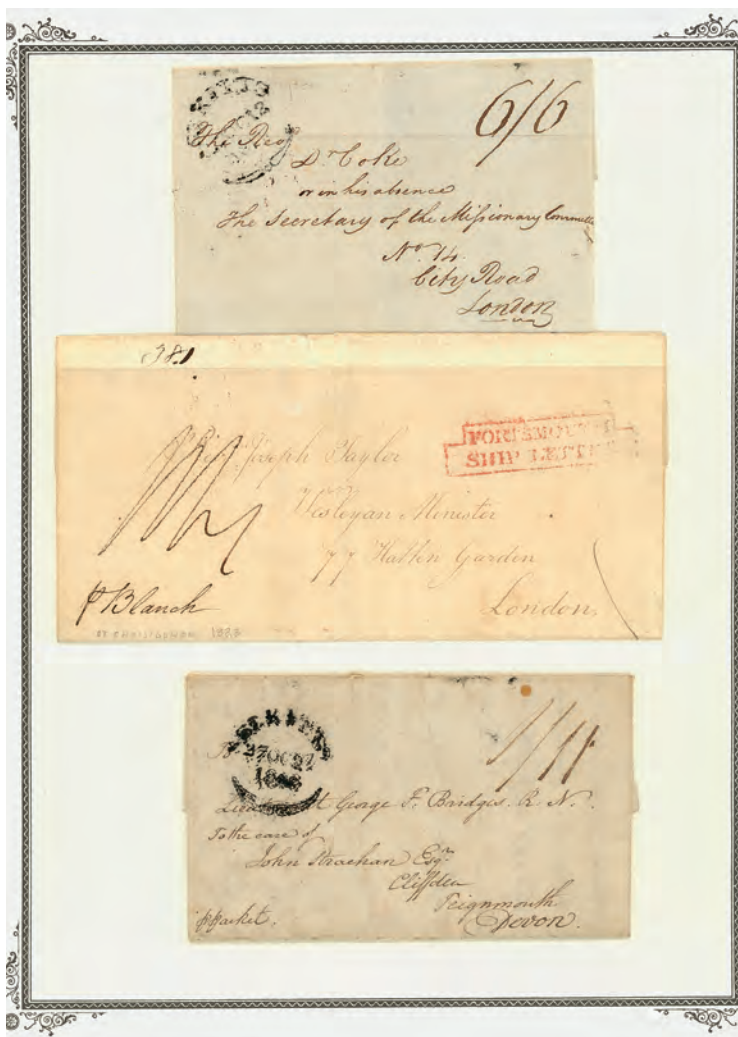 ST KITTS
6/6
The Revd
Dr Coke
or in his absence
The Secretary of the Missionary Committee
No. 14.
City Road
London
381
Revd Joseph Taylor
Wesleyan Minister
77 Hatton Garden
London
PORTSMOUTH
SHIP LETTER
p Blanch
ST CHRISTOPHER 1823
ST KITTS
27OC27
To
Lieutenant George F. Bridges. R. N.
To the care of
John Strachan Esqr
Cliffden
Teignmouth
Devon.
p Packet.